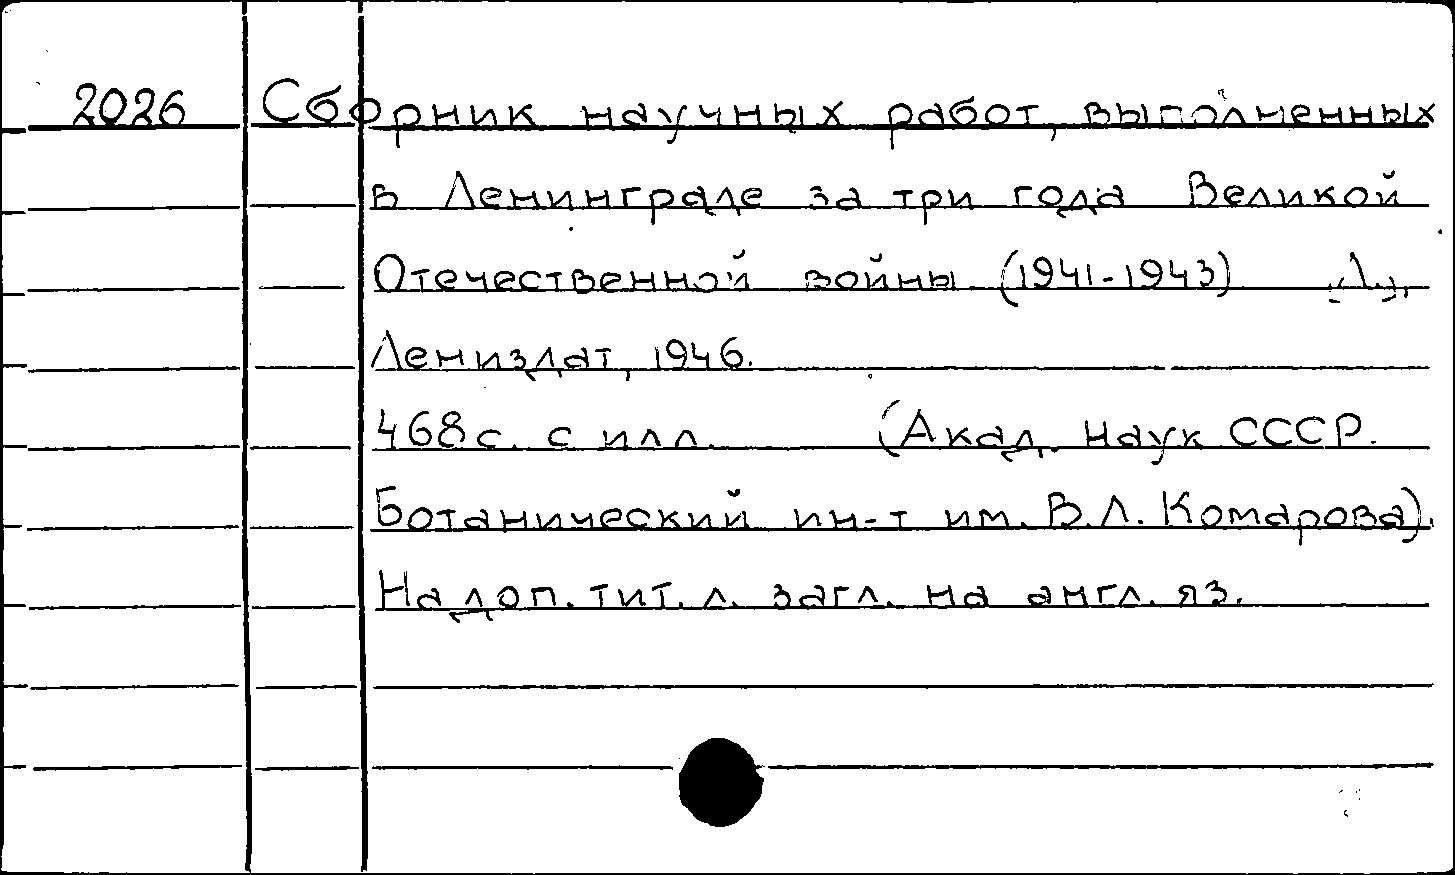 2026 Сборник научных работ, выполненных
в Ленинграде за три года Великой
Отечественной войны (1941-1943) Л.,
Лениздат, 1946.
468 с. с илл. (Акад. Наук СССР.
Ботанический ин-т им. В.Л. Комарова).
На доп. тит. л. загл. на англ. яз.